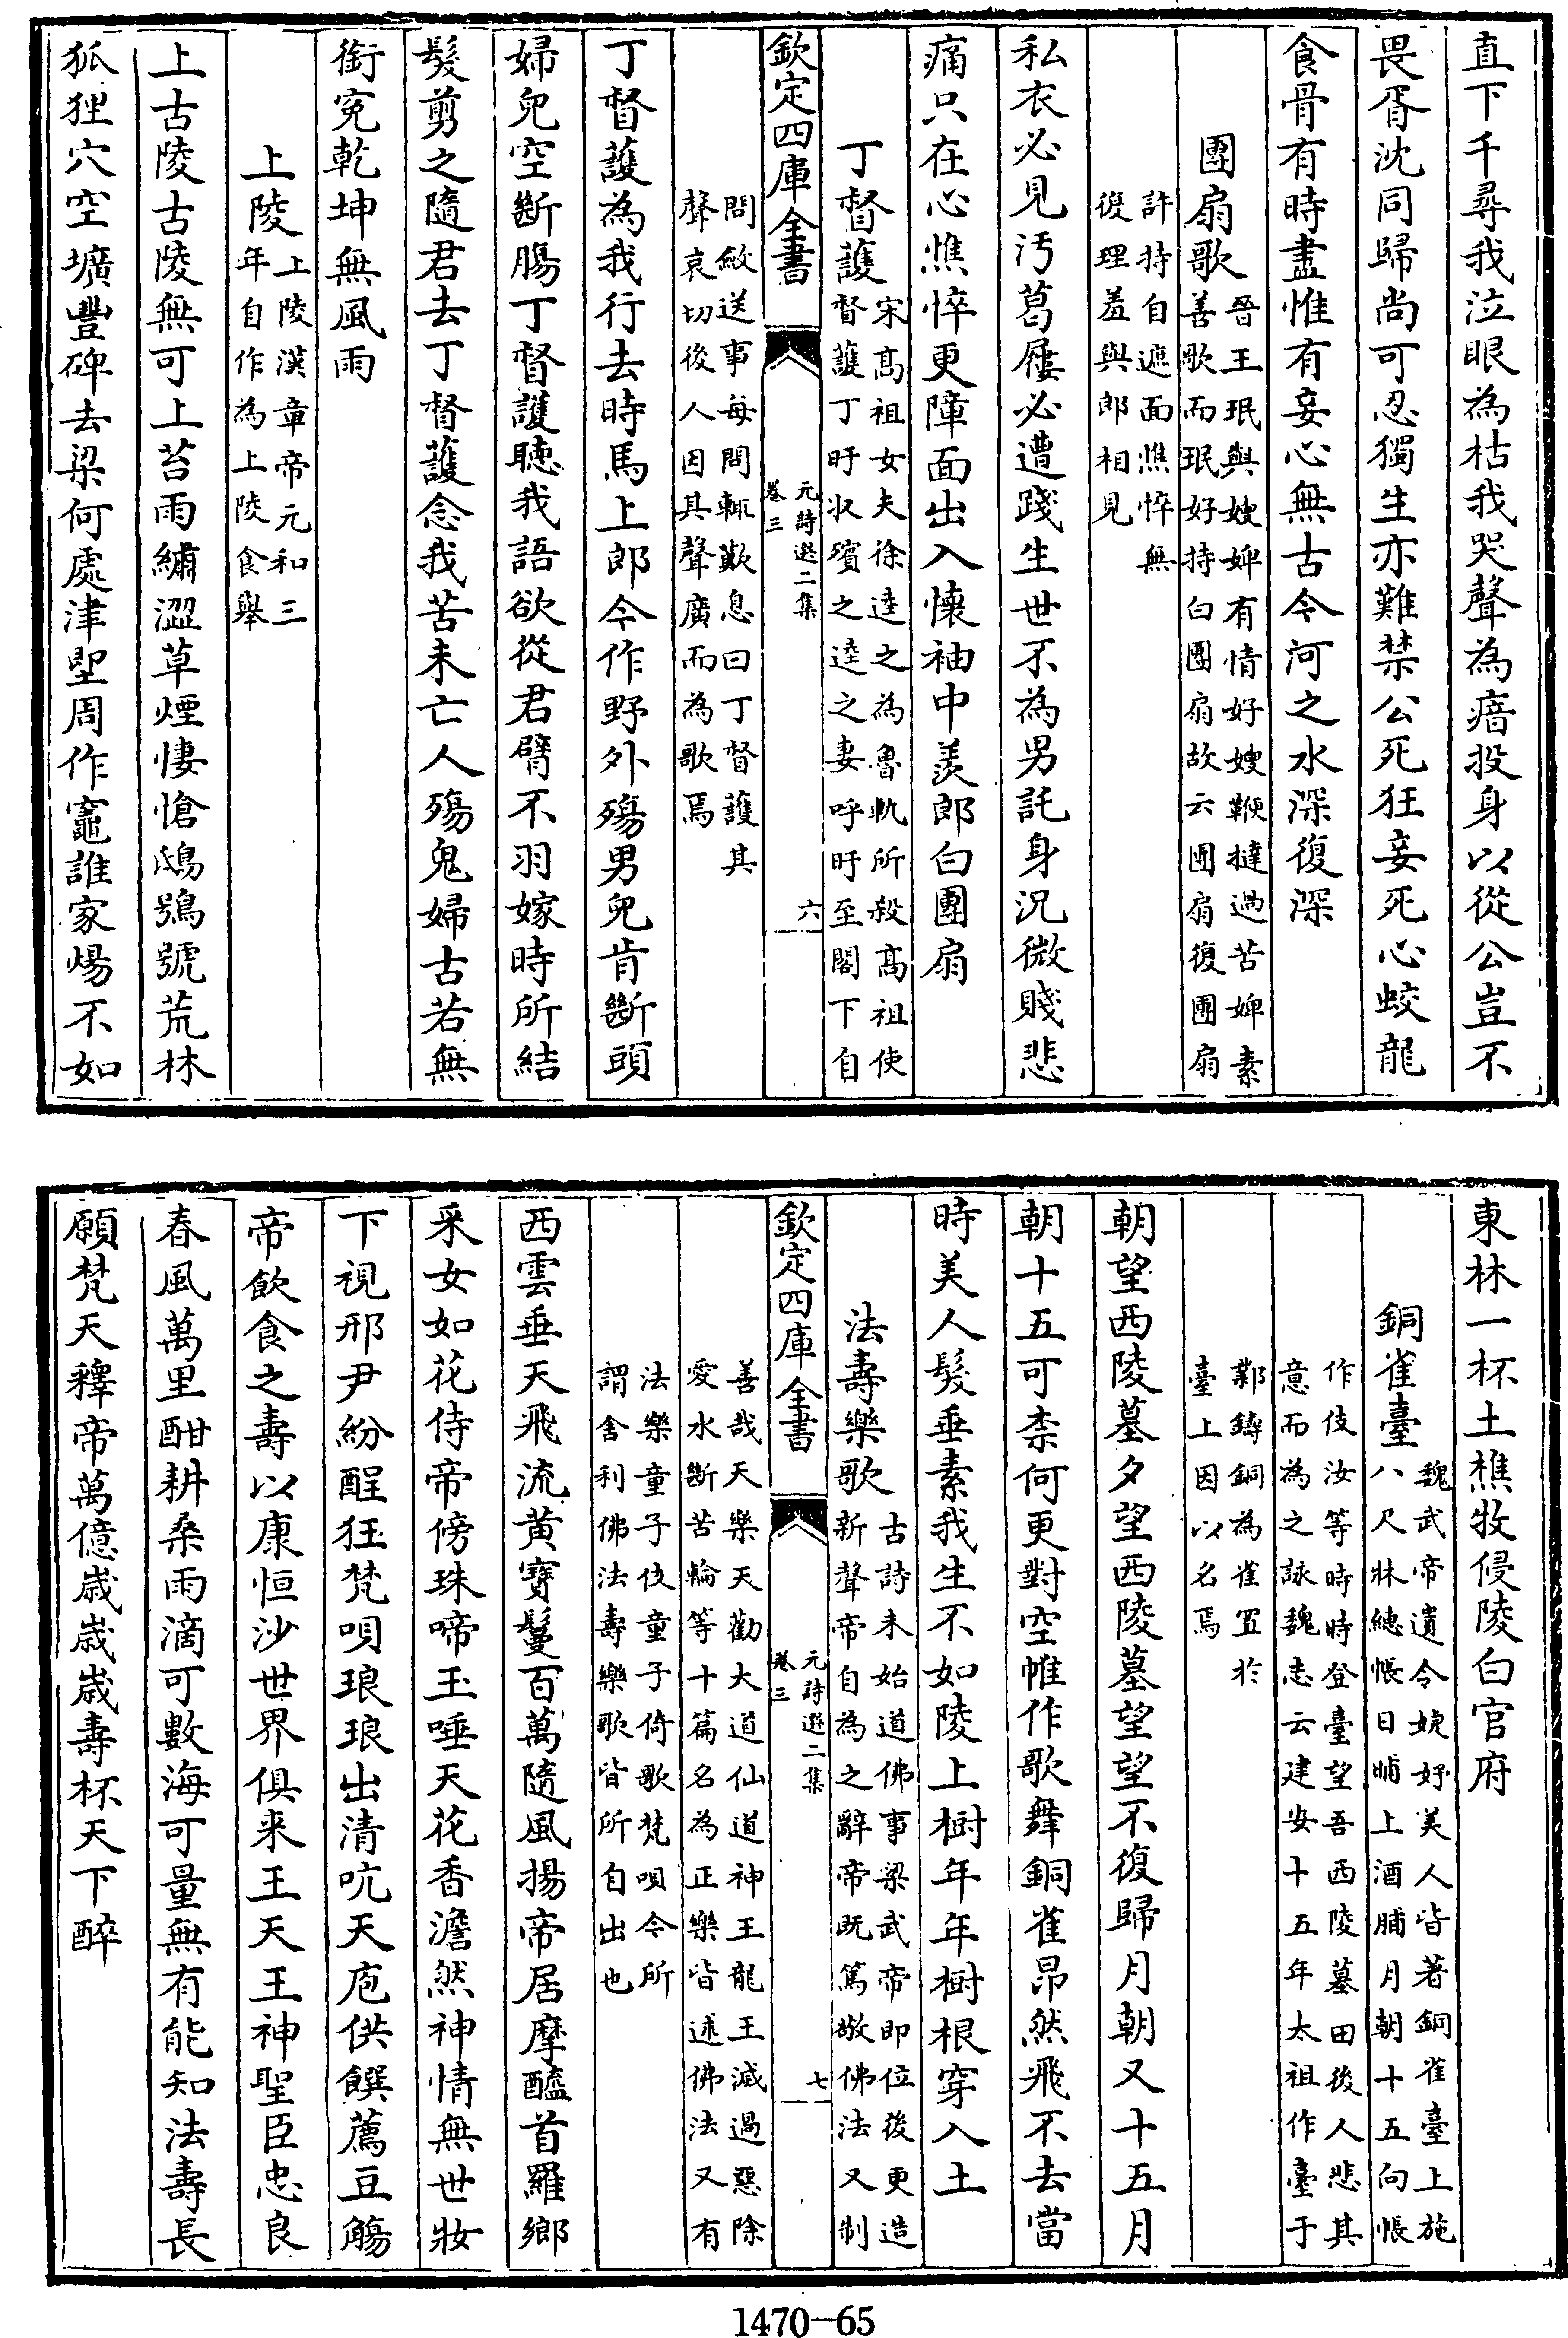 直下千尋我泣眼為枯我哭聲為瘖投身以從公豈不
畏胥沈同歸尚可忍獨生亦難禁公死狂妾死心蛟龍
食骨有時盡惟有妾心無古今河之水深復深
團扇歌晉王珉與嫂婢有情好嫂鞭撻過苦婢素
善歌而珉好持白團扇故云團扇復團扇
許持自遮面憔悴無
復理羞與郎相見
私衣必見汚葛屨必遭踐生世不為男託身況微賤悲
痛只在心憔悴更障面出入懷袖中羨郎白團扇
丁督護宋髙祖女夫徐逵之為魯軌所殺髙祖使
督護丁旿収殯之逵之妻呼旿至閣下自
欽定四庫全書
元詩選二集
卷三
六
問斂送事每問輒歎息曰丁督護其
聲哀切後人因其聲廣而為歌焉
丁督護為我行去時馬上郎今作野外殤男兒肯斷頭
婦兒空斷腸丁督護聽我語欲從君臂不羽嫁時所結
髮剪之隨君去丁督護念我苦未亡人殤鬼婦古若無
銜冤乾坤無風雨
上陵上陵漢章帝元和三
年自作為上陵食舉
上古陵古陵無可上苔雨繡澀草煙悽愴鴟鴞號荒林
狐狸穴空壙豐碑去梁何處津堲周作竈誰家煬不如
東林一杯土樵牧侵陵白官府
銅雀臺魏武帝遺令婕妤美人皆著銅雀臺上施
八尺牀繐帳日晡上酒脯月朝十五向帳
作伎汝等時時登臺望吾西陵墓田後人悲其
意而為之詠魏志云建安十五年太祖作臺于
鄴鑄銅為雀置於
臺上因以名焉
朝望西陵墓夕望西陵墓望望不復歸月朝又十五月
朝十五可柰何更對空帷作歌舞銅雀昂然飛不去當
時美人髮垂素我生不如陵上樹年年樹根穿入土
法壽樂歌古詩未始道佛事梁武帝即位後更造
新聲帝自為之辭帝既篤敬佛法又制
欽定四庫全書
元詩選二集
卷三
七
善哉天樂天勸大道仙道神王龍王滅過惡除
愛水斷苦輪等十篇名為正樂皆述佛法又有
法樂童子伎童子倚歌梵唄今所
謂舍利佛法壽樂歌皆所自出也
西雲垂天飛流黄寶鬘百萬隨風揚帝居摩醯首羅鄉
采女如花侍帝傍珠啼玉唾天花香澹然神情無世妝
下視邢尹紛酲狂梵唄琅琅出清吭天庖供饌薦豆觴
帝飲食之壽以康恒沙世界俱来王天王神聖臣忠良
春風萬里酣耕桑雨滴可數海可量無有能知法壽長
願梵天釋帝萬億歲歲歲壽杯天下醉
1470—65